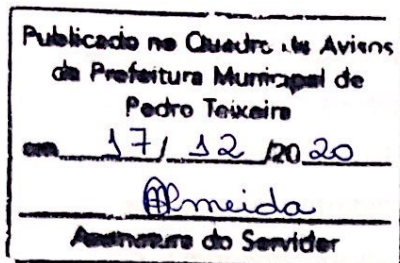 Publicado no Quadro de Avisos
da Prefeitura Municipal de
Pedro Teixeira
em 17/ 12 /20 20
Almeida
Assinatura do Servidor